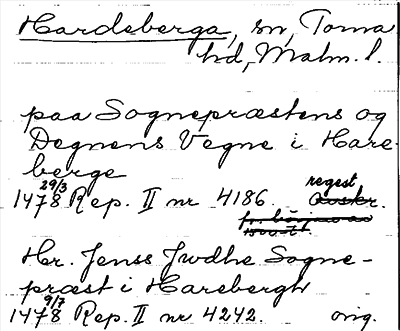 Hardeberga, sn, Torna
hd, Malm. l.
paa Sognepræstens og
Degnens Vegne i Hare-
berge
29/3
1478 Rep. II nr 4186. regest
Hr. Jenss Jwdhe Sogne-
præst i Harebergh
9/7
1478 Rep. II nr 4242. orig.